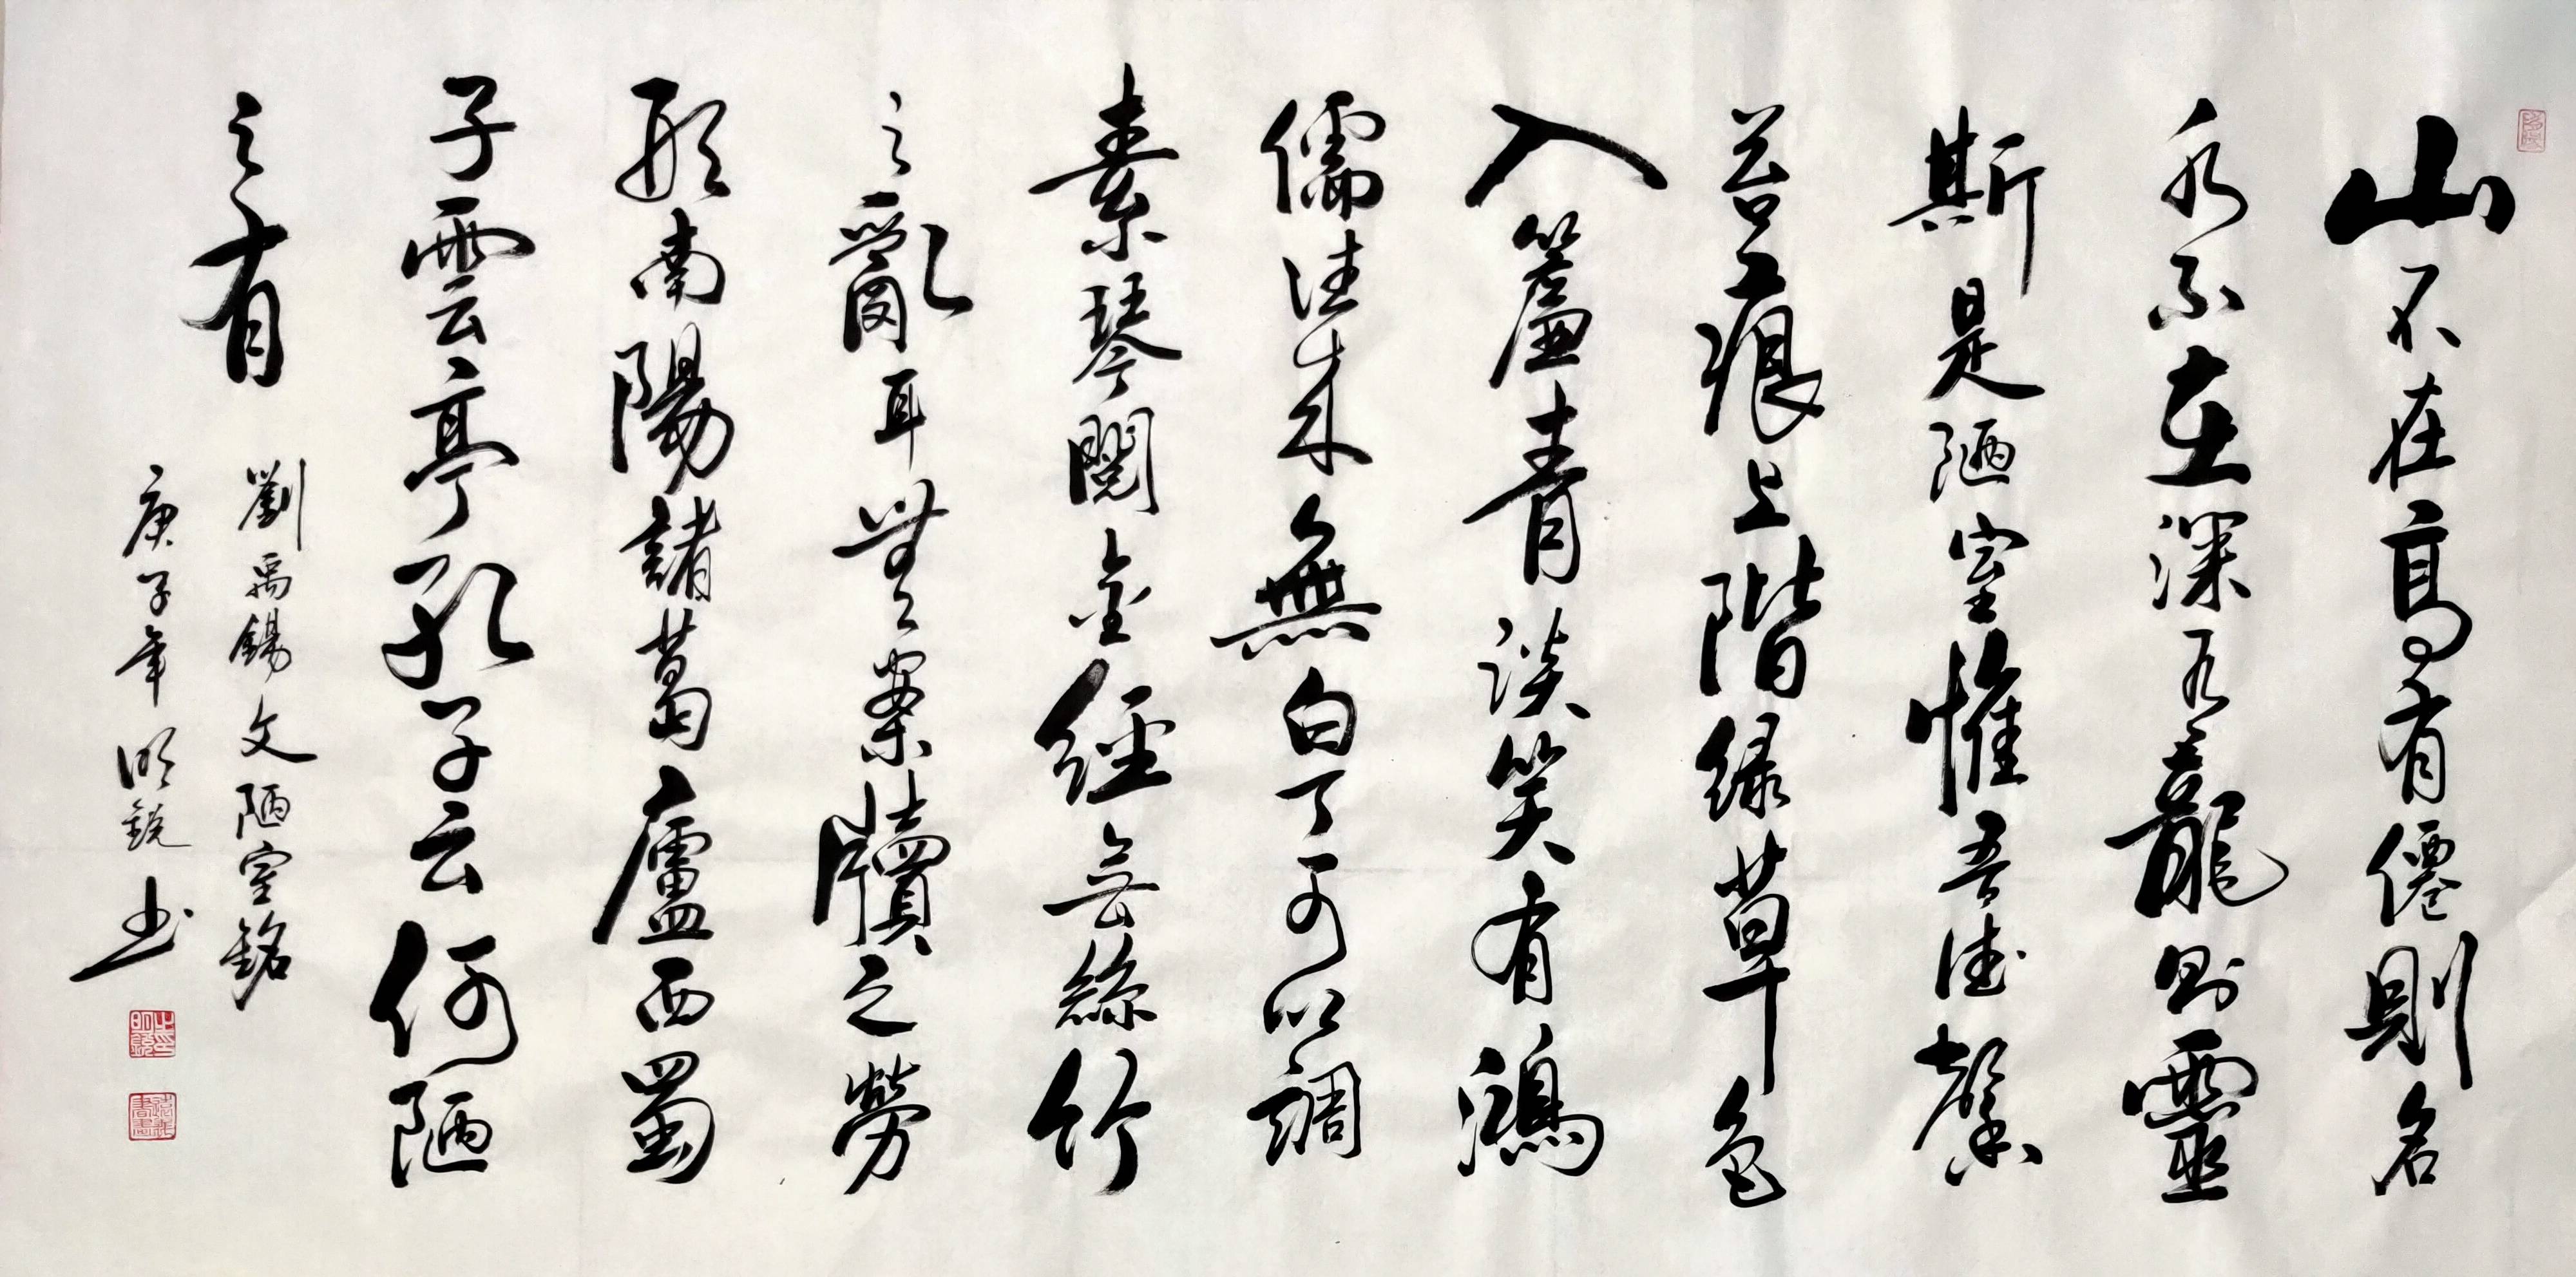 山不在高有僊則名
水不在深有龍則靈
斯是陋室惟吾德馨
苔痕上階緑草色
入簾青談笑有鴻
儒往来無白丁可以調
素琴閲金經無絲竹
之亂耳無案牘之勞
形南陽諸葛廬西蜀
子雲亭孔子云何陋
之有
劉禹錫文陋室銘
庚子年明銳书